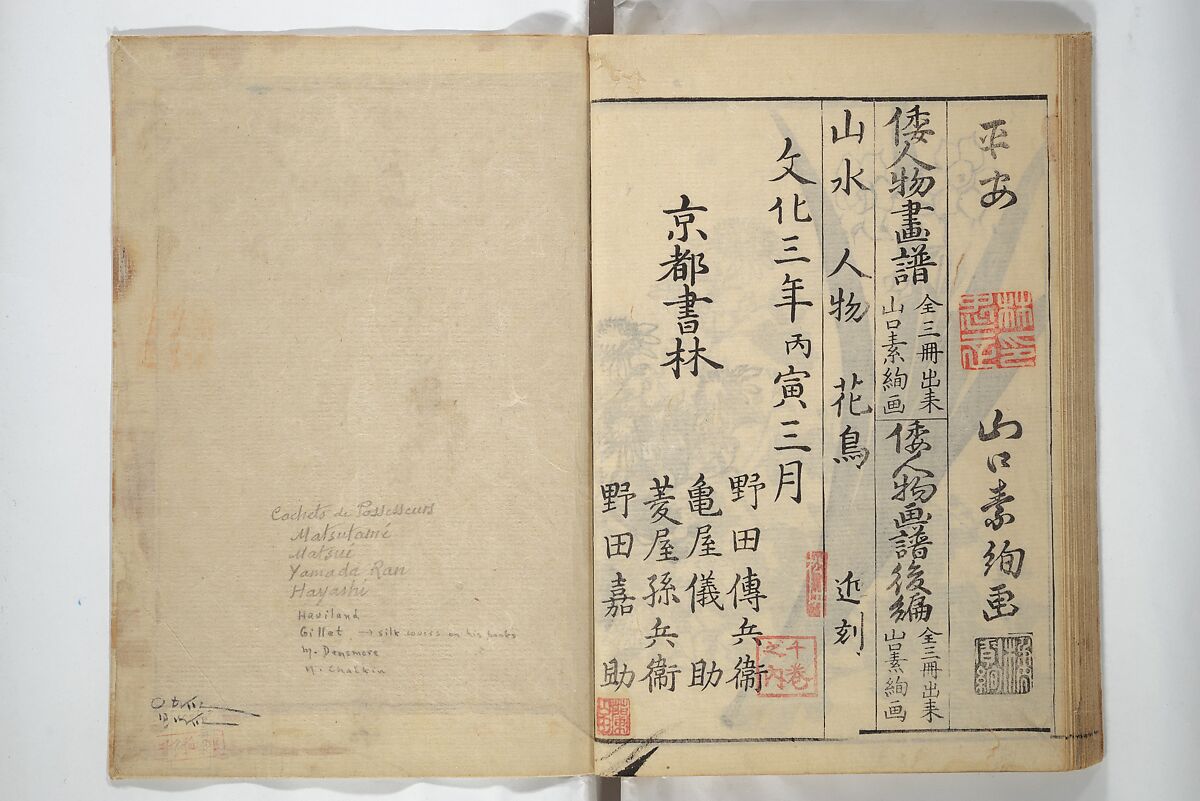 平安 山口素絢画
倭人物畫譜 全三冊出来 山口素絢画
倭人物画譜後編 全三冊出来 山口素絢画
山水 人物 花鳥 近刻
文化三年丙寅三月
京都書林
野田傳兵衛
亀屋儀助
菱屋孫兵衛
野田嘉助
千巻之内
Cachets de Possesseurs
Matsutami
Matsui
Yamada Ran
Hayashi
Haviland
Gillet → silk covers on his books